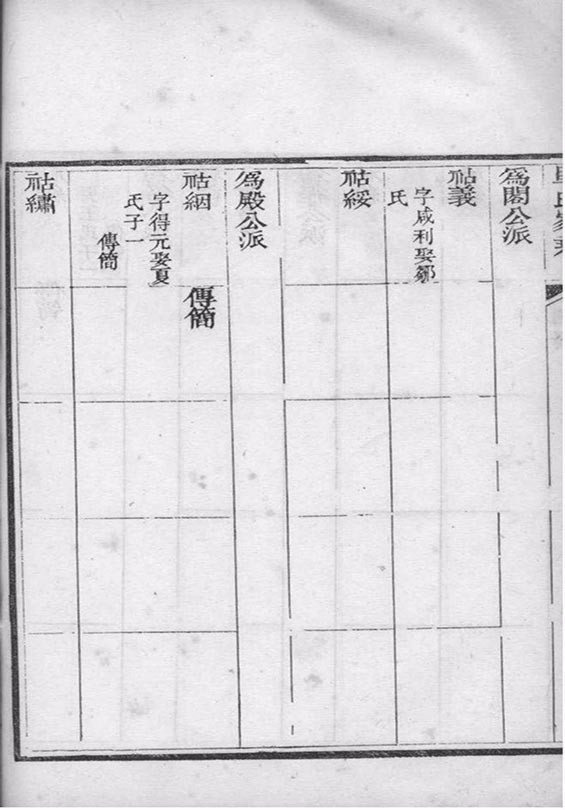 為閣公派
祜義
字咸利娶鄒
氏
祜綏
為殿公派
祜絪
字得元娶夏
氏子一
傳簡
傳簡
祜繡